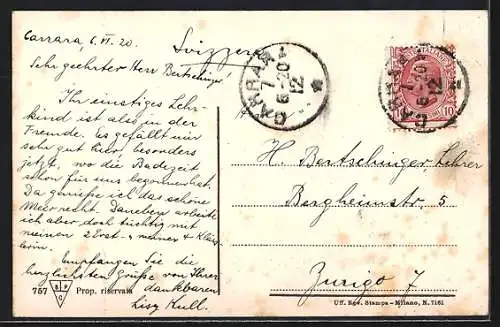 Carrara, 6. VI. 20.
Svizzera
Sehr geehrter Herr Bertschinger!
Ihr einstiges Lehr-
kind ist also in der
Fremde. Es gefällt mir
sehr gut hier besonders
jetzt, wo die Badezeit
schon für uns begonnen hat.
Da genieße ich das schöne
Meer recht. Daneben arbeite
ich aber doch tüchtig mit
meinen 2 Erst- &
lern.
Empfangen Sie die
herzlichsten Grüße von Ihrer
dankbaren
Lisy Kull.
757
Prop. riservata
CARRARA
7
6-20
12
CARRARA
7
6-20
12
10
H. Bertschinger, Lehrer
Bergheimstr. 5
Zurigo 7
Uff. Rev. Stampa - Milano, N. 7161